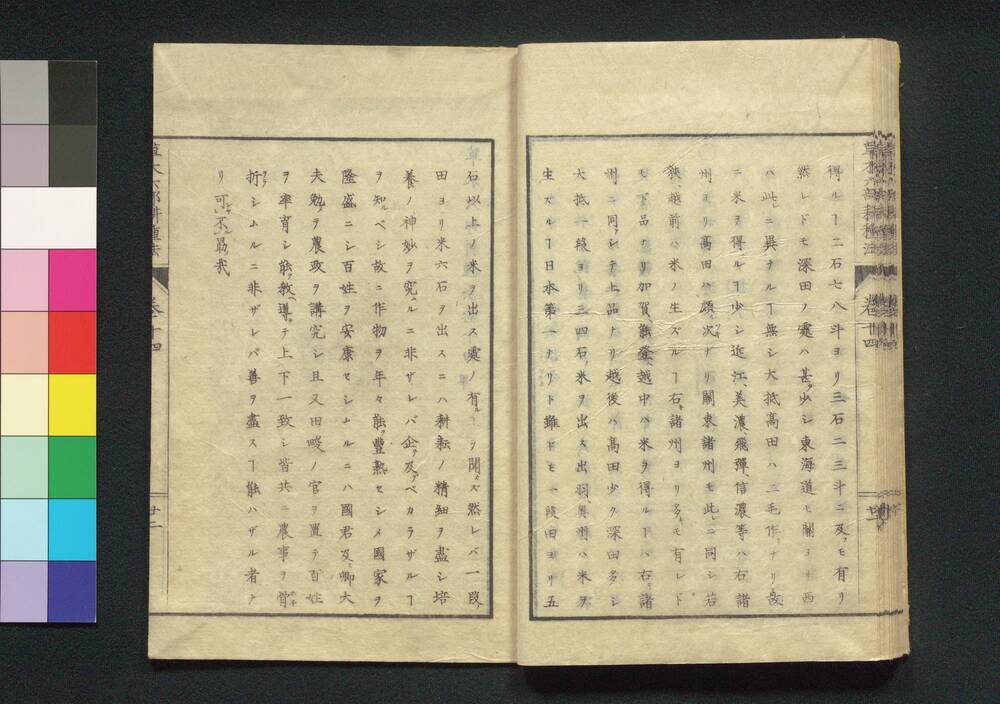 得ルヿ二石七八斗ヨリ三石二三斗ニ及ブモ有リ
然レドモ深田ノ處ハ甚ダ少シ東海道モ關ヨリ西
ハ此ニ異ナルヿ無シ大抵高田ハ二毛作ナリ故
ニ米ヲ得ルヿ少シ近江、美濃、飛彈、信濃等ハ右諸
州ヨリ高田ハ頗ル次ナリ關東諸州モ此ニ同シ若
狹、越前ハ米ノ生ズルヿ右ノ諸州ヨリ多キモ有レド
モ下品ナリ加賀、能登、越中ハ米ヲ得ルヿハ右ノ諸
州ニ同フシテ上品ナリ越後ハ高田少ク深田多シ
大抵一段ヨリ三四石ノ米ヲ出ス出羽、奧州ハ米ヲ
生ズルヿ日本第一ナリト雖ドモ一段田ヨリ五
草木六部耕種法
卷十四
廿二
石以上ノ米ヲ出ス處ノ有ルヿヲ聞カズ然レバ一段ノ
田ヨリ米六石ヲ出スニハ耕耘ノ精細ヲ盡シ培
養ノ神妙ヲ究ムルニ非ザレバ企テ及ブベカラザルヿ
ヲ知ルベシ故ニ作物ヲ年々能ク豐熟セシメ國家ヲ
隆盛ニシ百姓ヲ安康セシムルニハ國君及ビ卿大
夫勉テ農政ヲ講究シ且又田畯ノ官ヲ置テ百姓
ヲ率育シ能ク教ヘ導テ上下一致シ皆共ニ農事ヲ骨
折シムルニ非ザレバ善ヲ盡スヿ能ハザル者ナ
リ可ンヤ不ル勗メ哉